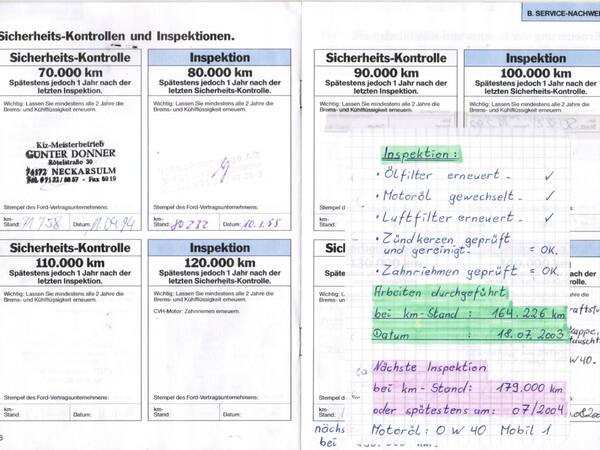 Sicherheits-Kontrollen und Inspektionen.
B. SERVICE-NACHWE
Sicherheits-Kontrolle
70.000 km
Spätestens jedoch 1 Jahr nach der
letzten Inspektion.
Wichtig: Lassen Sie mindestens alle 2 Jahre die
Brems- und Kühlflüssigkeit erneuern.
Kfz-Meisterbetrieb
GÜNTER DONNER
Rötelstraße 30
74172 NECKARSULM
Stempel des Ford-Vertragsunternehmens:
km-
Stand:
Datum: 11.04.94
Inspektion
80.000 km
Spätestens jedoch 1 Jahr nach der
letzten Sicherheits-Kontrolle.
Wichtig: Lassen Sie mindestens alle 2 Jahre die
Brems- und Kühlflüssigkeit erneuern.
Stempel des Ford-Vertragsunternehmens:
km-
Stand: 80232
Datum:
Sicherheits-Kontrolle
90.000 km
Spätestens jedoch 1 Jahr nach der
letzten Inspektion.
Wichtig: Lassen Sie mindestens alle 2 Jahre die
Brems- und Kühlflüssigkeit erneuern.
Inspektion
100.000 km
Spätestens jedoch 1 Jahr nach der
letzten Sicherheits-Kontrolle.
Wichtig: Lassen Sie mindestens alle 2 Jahre die
Brems- und Kühlflüssigkeit erneuern.
Sicherheits-Kontrolle
110.000 km
Spätestens jedoch 1 Jahr nach der
letzten Inspektion.
Wichtig: Lassen Sie mindestens alle 2 Jahre die
Brems- und Kühlflüssigkeit erneuern.
Stempel des Ford-Vertragsunternehmens:
km-
Stand:
Datum:
Inspektion
120.000 km
Spätestens jedoch 1 Jahr nach der
letzten Sicherheits-Kontrolle.
Wichtig: Lassen Sie mindestens alle 2 Jahre die
Brems- und Kühlflüssigkeit erneuern.
CVH-Motor: Zahnriemen erneuern.
Stempel des Ford-Vertragsunternehmens:
km-
Stand:
Datum:
Inspektion:
• Ölfilter erneuert - ✓
• Motoröl gewechselt - ✓
• Luftfilter erneuert - ✓
• Zündkerzen geprüft
und gereinigt - = OK.
• Zahnriemen geprüft = OK.
Arbeiten durchgeführt
bei km-Stand: 164.226 km
Datum : 18.07.2003
Nächste Inspektion
bei km-Stand: 179.000 km
oder spätestens am: 07/2004
Motoröl: 0 W 40 Mobil 1